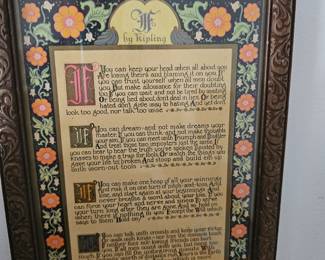 If
by Kipling
If you can keep your head when all about you
Are losing theirs and blaming it on you, If
you can trust yourself when all men doubt
you, But make allowance for their doubting
too, If you can wait and not be tired by waiting
Or being lied about, don't deal in lies, Or being
hated don't give way to hating, And yet don't
look too good, nor talk too wise
If you can dream and not make dreams your
master, If you can think and not make thoughts
your aim, If you can meet with Triumph and Disaster
And treat those two imposters just the same, If
you can bear to hear the truth you've spoken Twisted by
knaves to make a trap for fools, Or watch the things you
gave your life to broken, And stoop and build em up
with worn-out tools
If you can make one heap of all your winnings
And risk it on one turn of pitch-and-toss, And
lose, and start again at your beginnings And
never breathe a word about your loss, If you
can force your heart and nerve and sinew To serve
your turn long after they are gone, And so hold on
when there is nothing in you Except the Will which
says to them Hold on
If you can talk with crowds and keep your virtue,
Or walk with Kings nor lose the common touch,
If neither foes nor loving friends can hurt